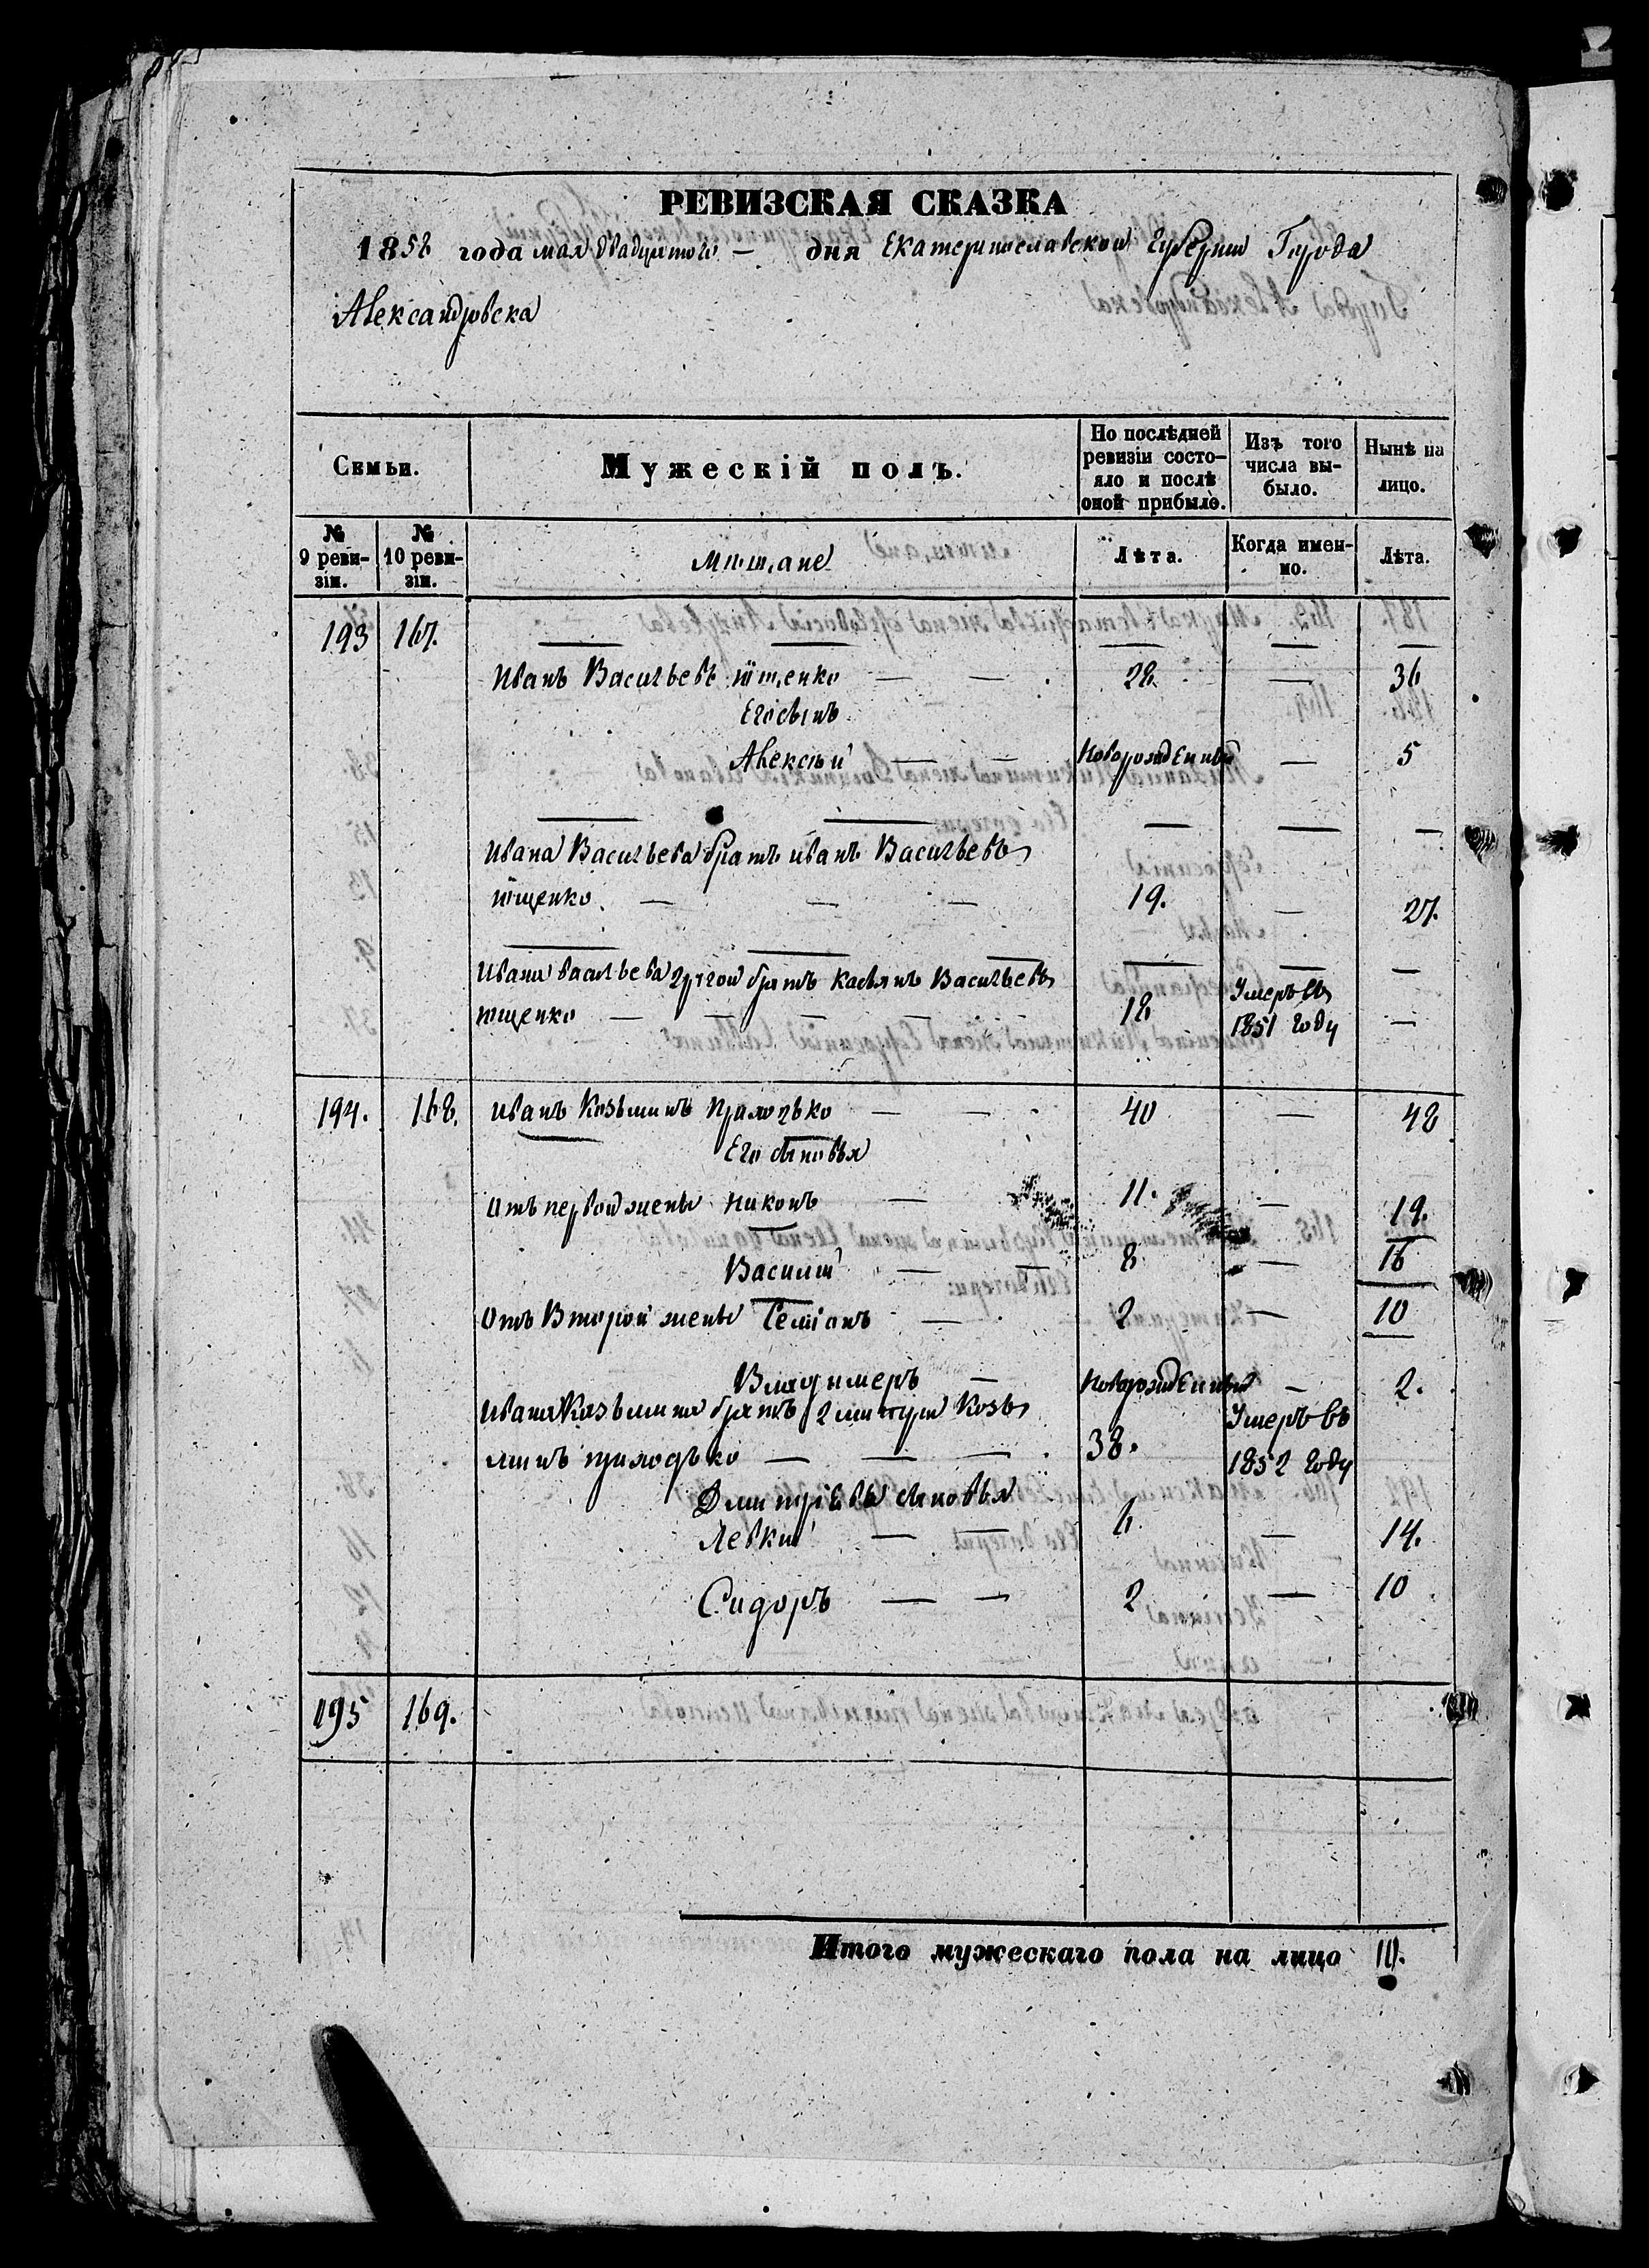 РЕВИЗСКАЯ СКАЗКА
1858 года мая двадцатого — дня Екатеринославской Губернии Города
Александровска
Семьи.
Мужескій полъ.
По послѣдней ревизіи состояло и послѣ оной прибыло.
Изъ того числа выбыло.
Нынѣ на лицо.
№ 9 ревизіи.
№ 10 ревизіи.
Мѣщане
Лѣта.
Когда именно.
Лѣта.
193 167.
Иванъ Васильевъ Ющенко — — 28. — 36
Его сынъ
Алексѣй — — Новорожденный — 5
Ивана Васильева братъ Иванъ Васильевъ
Ющенко — — — 19. — 27.
Ивана Васильева другой братъ Касьянъ Васильевъ
Ющенко — — — — 18 Умеръ въ 1851 году —
194. 168. Иванъ Козьминъ Приходько — — 40 — 48
Его сыновья
Отъ первой жены Никонъ — 11. — 19.
Василий — — 8 — 16
Отъ Второй жены Семіонъ — 2 — 10
Владимеръ — Новорожденный — 2.
Ивана Козьмина братъ Дмитрий Козь
минъ приходько — — — 38. Умеръ въ 1852 году
Дмитріевы сыновья
Левкий — — 6. — 14.
Сидоръ — — 2 — 10
195 169.
Итого мужескаго пола на лицо 10.